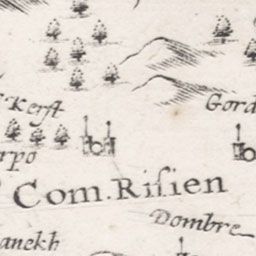 Kerst
Gord
rpo
Com. Riſien
Dombre
anekh